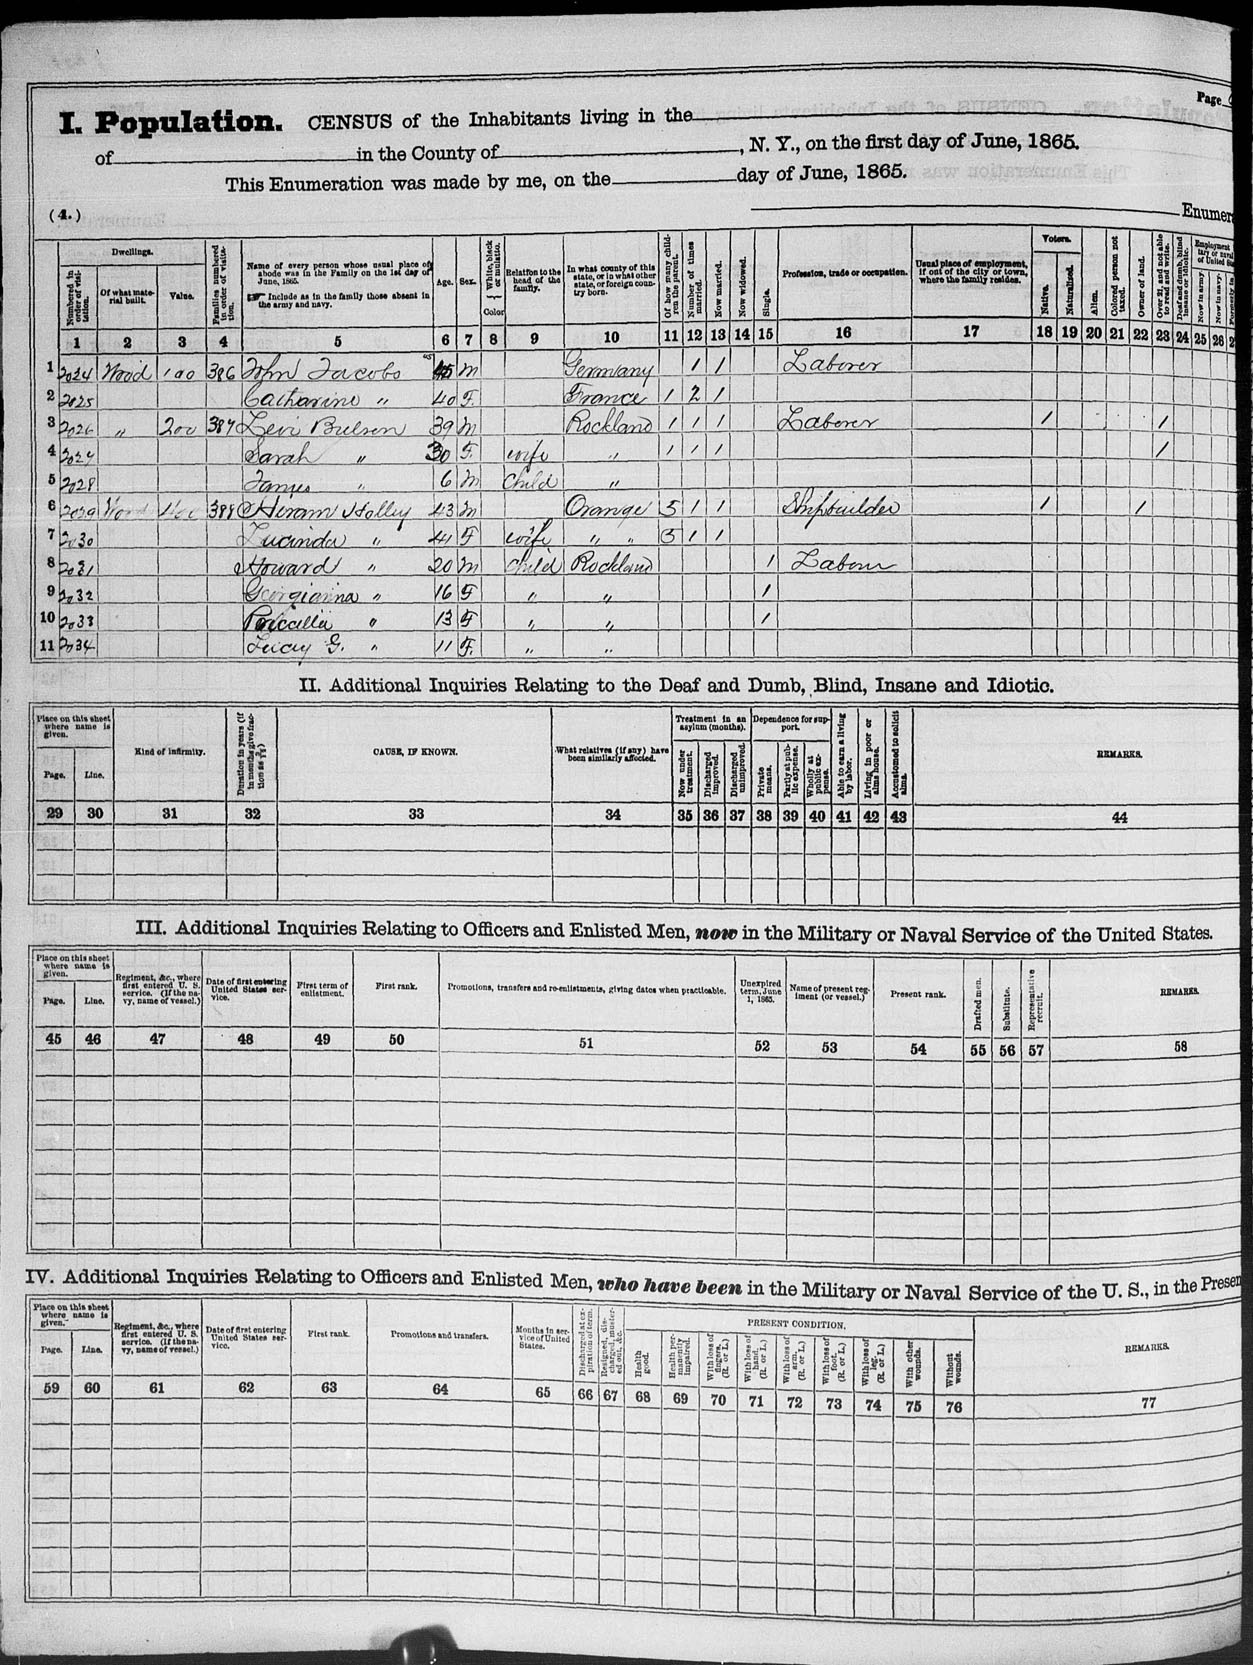 Page
I. Population. CENSUS of the Inhabitants living in the
of in the County of , N. Y., on the first day of June, 1865.
This Enumeration was made by me, on the day of June, 1865.
(4.) Enumer
Dwellings. Voters. Employment
Numbered in order of visitation.
Of what material built.
Value.
Families numbered in order of visitation.
Name of every person whose usual place of abode was in the Family on the 1st day of June, 1865.
Include as in the family those absent in the army and navy.
Age.
Sex.
White, black or mulatto. Color
Relation to the head of the family.
In what county of this state, or in what other state, or foreign country born.
Of how many children the parent.
Number of times married.
Now married.
Now widowed.
Single.
Profession, trade or occupation.
Usual place of employment, if out of the city or town, where the family resides.
Native.
Naturalized.
Alien.
Colored person not taxed.
Owner of land.
Over 21, and not able to read and write.
Deaf and dumb, blind insane or idiotic.
Now in army.
Now in navy.
1 2 3 4 5 6 7 8 9 10 11 12 13 14 15 16 17 18 19 20 21 22 23 24 25 26
1 2024 Wood 100 386 John Jacobs 45 M Germany 1 1 Laborer
2 2025 Catharine " 40 F. France 1 2 1
3 2026 " 200 387 Levi 39 M Rockland 1 1 1 Laborer 1 1
4 2027 Sarah " 30 F. wife " 1 1 1 1
5 2028 James " 6 M Child "
6 2029 Wood 388 Hiram Holley 43 M Orange 5 1 1 Shipbuilder 1 1
7 2030 Lucinda " 41 F wife " " 5 1 1
8 2031 Howard " 20 M child Rockland 1 Labour
9 2032 Georgianna " 16 F " " 1
10 2033 Priccilla " 13 F " " 1
11 2034 Lucy G. " 11 F. " "
II. Additional Inquiries Relating to the Deaf and Dumb, Blind, Insane and Idiotic.
Place on this sheet where name is given.
Page. Line.
Kind of infirmity.
Duration in years (if in months give fraction as 3/12)
CAUSE, IF KNOWN.
What relatives (if any) have been similarly affected.
Treatment in an asylum (months).
Now under treatment.
Discharged improved.
Discharged unimproved.
Dependence for support.
Private means.
Partly at public expense.
Wholly at public expense.
Able to earn a living by labor.
Living in poor or alms house.
Accustomed to solicit alms.
REMARKS.
29 30 31 32 33 34 35 36 37 38 39 40 41 42 43 44
III. Additional Inquiries Relating to Officers and Enlisted Men, now in the Military or Naval Service of the United States.
Place on this sheet where name is given.
Page. Line.
Regiment, &c., where first entered U. S. service. (If the navy, name of vessel.)
Date of first entering United States service.
First term of enlistment.
First rank.
Promotions, transfers and re-enlistments, giving dates when practicable.
Unexpired term, June 1, 1865.
Name of present regiment (or vessel.)
Present rank.
Drafted men.
Substitute.
Representative recruit.
REMARKS.
45 46 47 48 49 50 51 52 53 54 55 56 57 58
IV. Additional Inquiries Relating to Officers and Enlisted Men, who have been in the Military or Naval Service of the U. S., in the Presen
Place on this sheet where name is given.
Page. Line.
Regiment, &c., where first entered U. S. service. (If the navy, name of vessel.)
Date of first entering United States service.
First rank.
Promotions and transfers.
Months in service of United States.
Discharged at expiration of term.
Resigned, discharged, mustered out, &c.
PRESENT CONDITION.
Health good.
Health permanently impaired.
With loss of fingers. (R. or L.)
With loss of hand. (R. or L.)
With loss of arm. (R. or L.)
With loss of foot. (R. or L.)
With loss of leg. (R. or L.)
With other wounds.
Without wounds.
REMARKS.
59 60 61 62 63 64 65 66 67 68 69 70 71 72 73 74 75 76 77